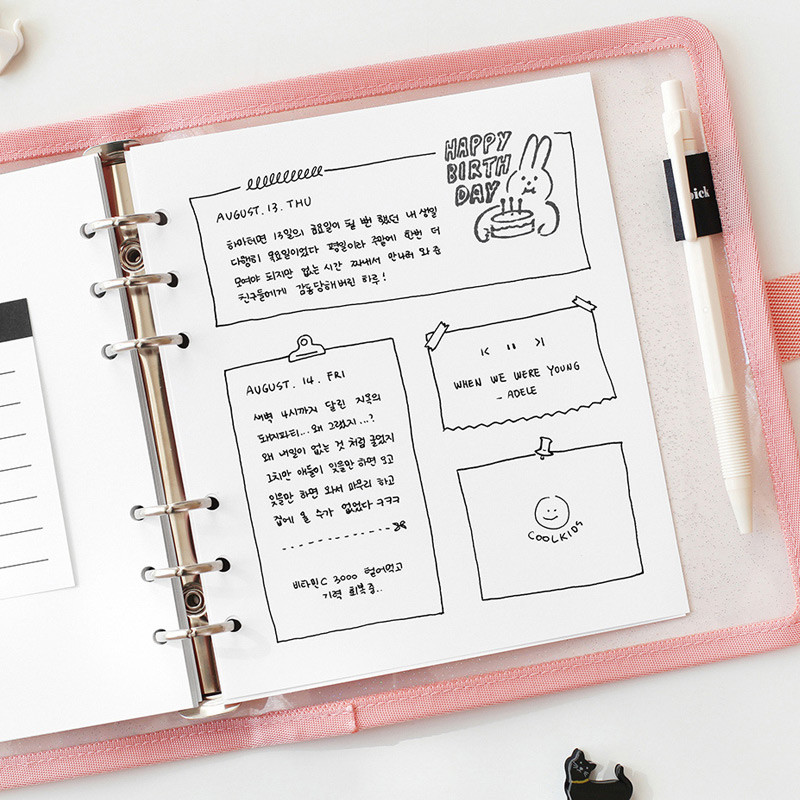 HAPPY
BIRTH
DAY
AUGUST. 13. THU
하마터면 13일의 금요일이 될 뻔 했던 내 생일
다행히 목요일이었다 평일이라 주말에 한번 더
모여야 되지만 없는 시간 짜내서 만나러 와준
친구들에게 감동당해버린 하루!
AUGUST. 14. FRI
새벽 4시까지 달린 지옥의
돼지파티... 왜 그랬지...?
왜 내일이 없는 것 처럼 굴었지
그치만 애들이 잊을만 하면 오고
잊을만 하면 와서 마무리 하고
집에 올 수가 없었다 ㅋㅋㅋ
비타민C 3000 털어먹고
기력 회복중..
WHEN WE WERE YOUNG
- ADELE
COOLKIDS
pick